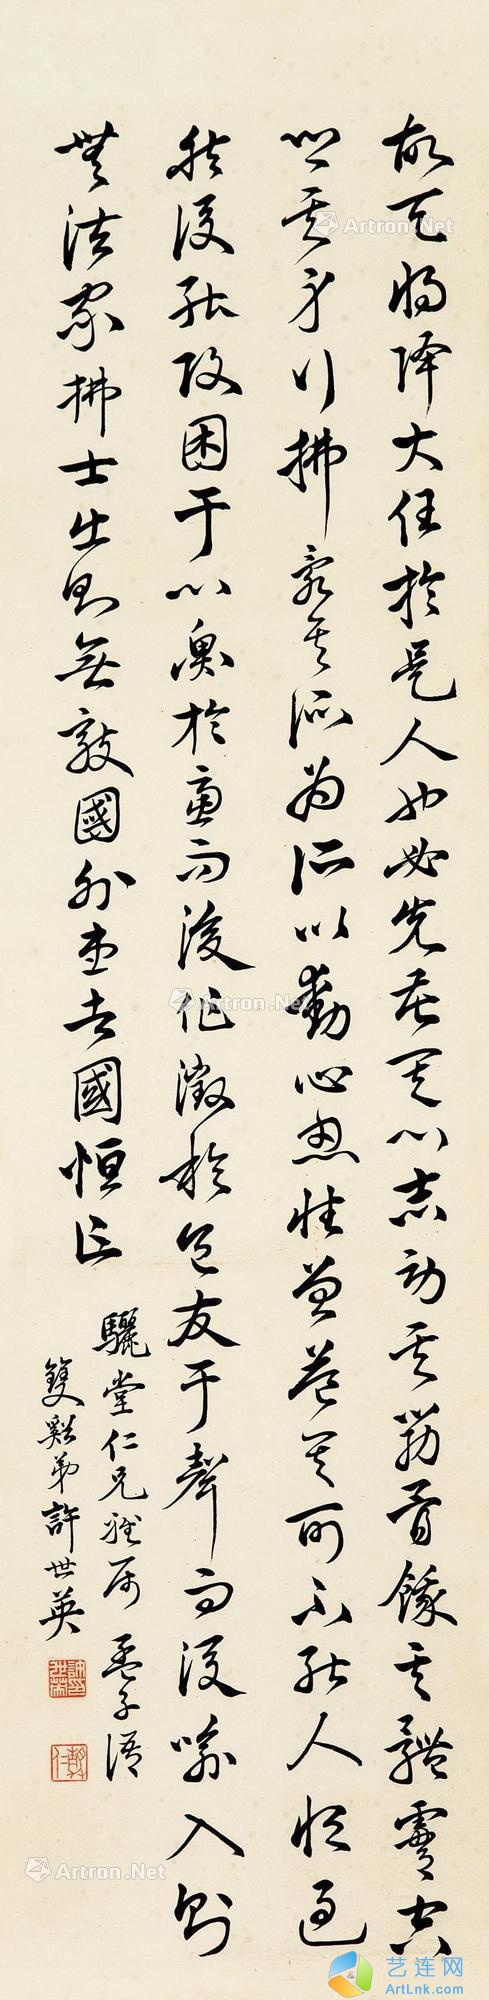 故天將降大任於是人也必先苦其心志勞其筋骨餓其體膚空
乏其身行拂亂其所為所以動心忍性曾益其所不能人恒過
然後能改困于心衡於慮而後作徵於色發于聲而後喻入則
無法家拂士出則無敵國外患者國恒亡
驪堂仁兄雅屬 孟子語
雙谿弟許世英
Artron.Net
Artron.Net
Artron.Net
Artron.Net
Artron.Net
Artron.Net
艺连网
ArtLnk.com